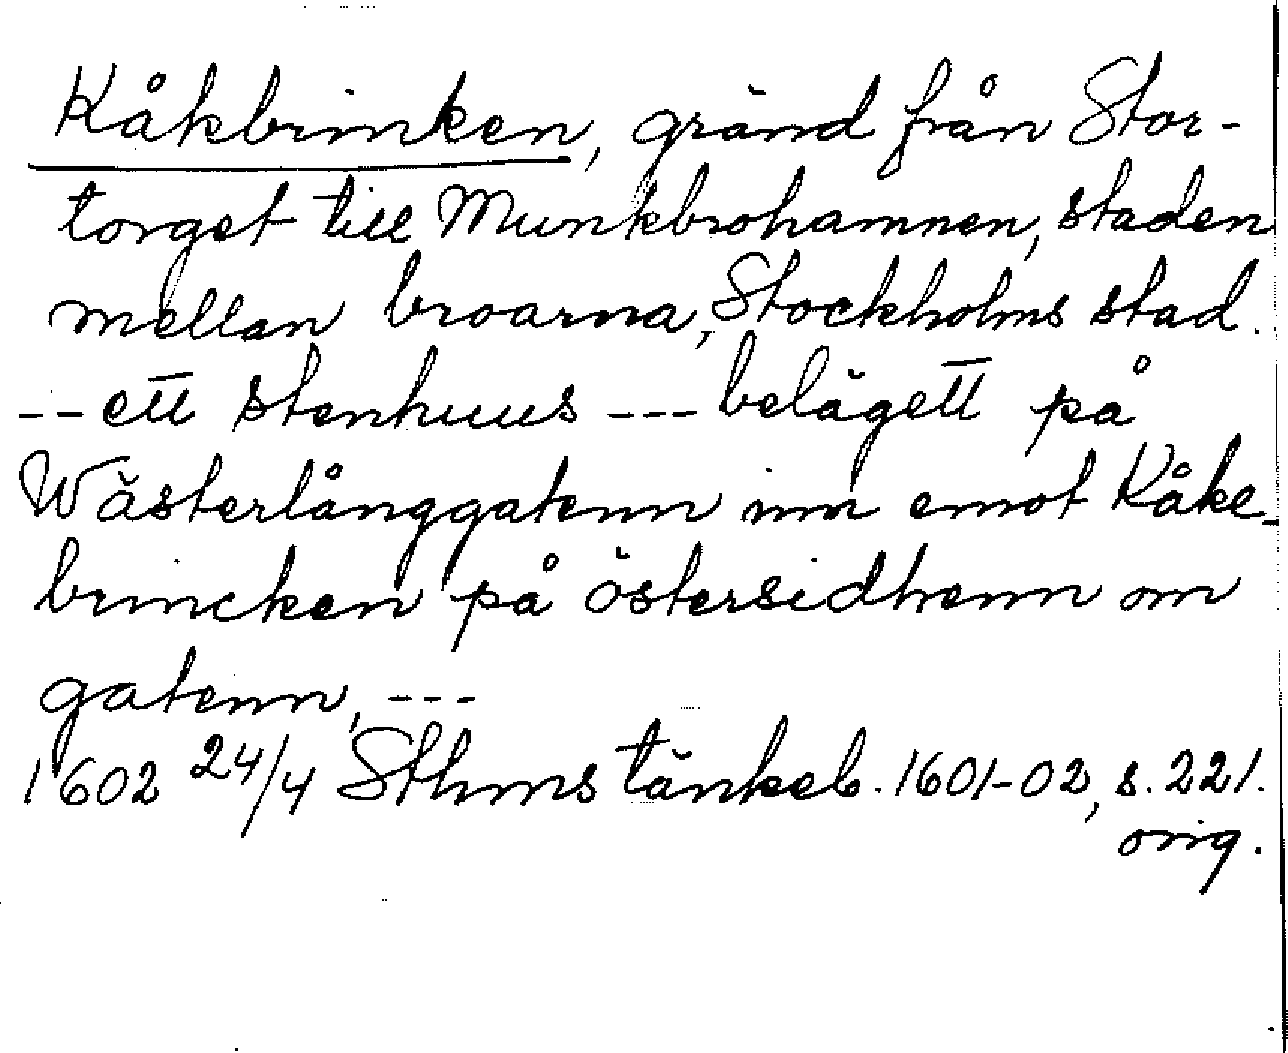 Kåkbrinken, gränd från Stor-
torget till Munkbrohamnen, staden
mellan broarna, Stockholms stad.
-- ett stenhuus --- belägett på
Wästerlånggatenn inn emot Kåke-
brincken på östersidhenn om
gatenn, ---
1602 24/4 Sthms tänkeb. 1601-02, s. 221.
orig.